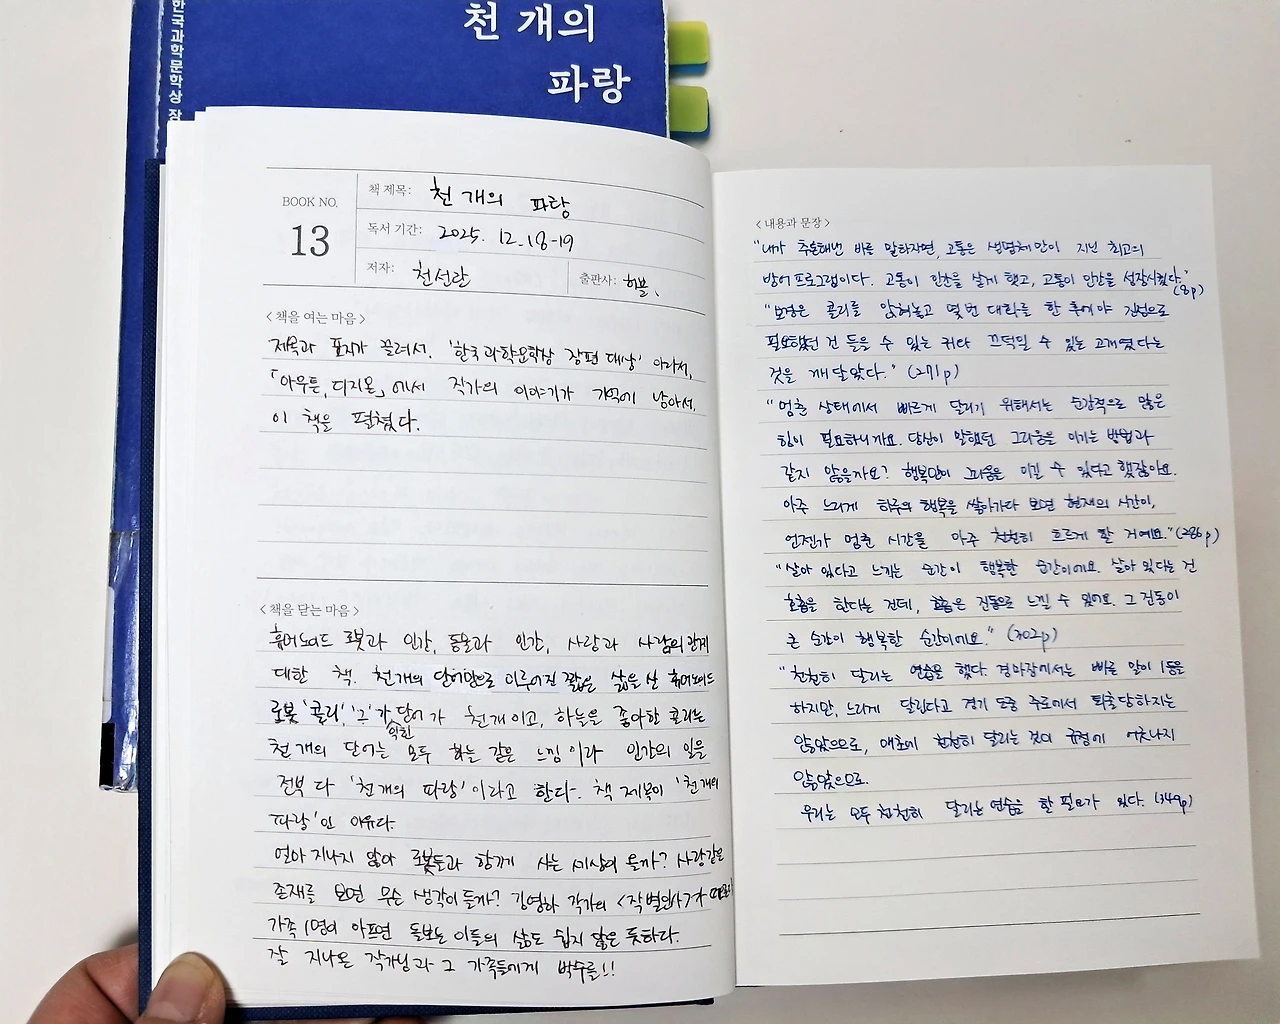 한국과학문학상 장
천 개의
파랑
BOOK NO.
13
책 제목: 천 개의 파랑
독서 기간: 2025. 12. 18-19
저자: 천선란
출판사: 허블.
<책을 여는 마음>
제목과 표지가 끌려서. '한국과학문학상 장편 대상' 이라서,
「아우튼, 디지몬」에서 작가의 이야기가 기억에 남아서.
이 책을 펼쳤다.
<책을 닫는 마음>
휴머노이드 로봇과 인간, 동물과 인간, 사람과 사람의 관계
대한 책. 천 개의 단어만으로 이루어진 짧은 삶을 산 휴머노이드
로봇 '콜리', '그'가 익힌 단어가 천 개이고, 하늘은 좋아한 콜리는
천 개의 단어는 모두 하늘 같은 느낌이라 인간의 일을
전부 다 '천 개의 파랑'이라고 한다. 책 제목이 '천 개의
파랑'인 이유다.
얼마 지나지 않아 로봇들과 함께 사는 세상이 올까? 사람같은
존재를 보면 무슨 생각이 들까? 김영하 작가의 <작별인사>가
가족 1명이 아프면 돌보는 이들의 삶도 쉽지 않은 듯하다.
잘 지나온 작가님과 그 가족들에게 박수를!!
<내용과 문장>
"내가 추론해낸 바를 말하자면, 고통은 생명체만이 지닌 최고의
방어 프로그램이다. 고통이 인간을 살게 했고, 고통이 인간을 성장시켰다." (8p)
"보경은 콜리를 앉혀놓고 몇 번 대화를 한 후에야 진정으로
필요했던 건 들을 수 있는 귀와 끄덕일 수 있는 고개였다는
것을 깨달았다." (271p)
"멈춘 상태에서 빠르게 달리기 위해서는 순간적으로 많은
힘이 필요하니까요. 당신이 말했던 그리움을 이기는 방법과
같지 않을까요? 행복만이 그리움을 이길 수 있다고 했잖아요.
아주 느리게 하루의 행복을 쌓아가다 보면 현재의 시간이,
언젠가 멈춘 시간을 아주 천천히 흐르게 할 거예요." (286p)
"살아 있다고 느끼는 순간이 행복한 순간이에요. 살아 있다는 건
호흡을 한다는 건데, 호흡은 진동으로 느낄 수 있어요. 그 진동이
큰 순간이 행복한 순간이에요." (302p)
"천천히 달리는 연습을 했다. 경마장에서는 빠른 말이 1등을
하지만, 느리게 달린다고 경기 도중 주로에서 퇴출당하지는
않았으므로, 애초에 천천히 달리는 것이 규정에 어긋나지
않았으므로.
우리는 모두 천천히 달리는 연습을 할 필요가 있다. (349p)